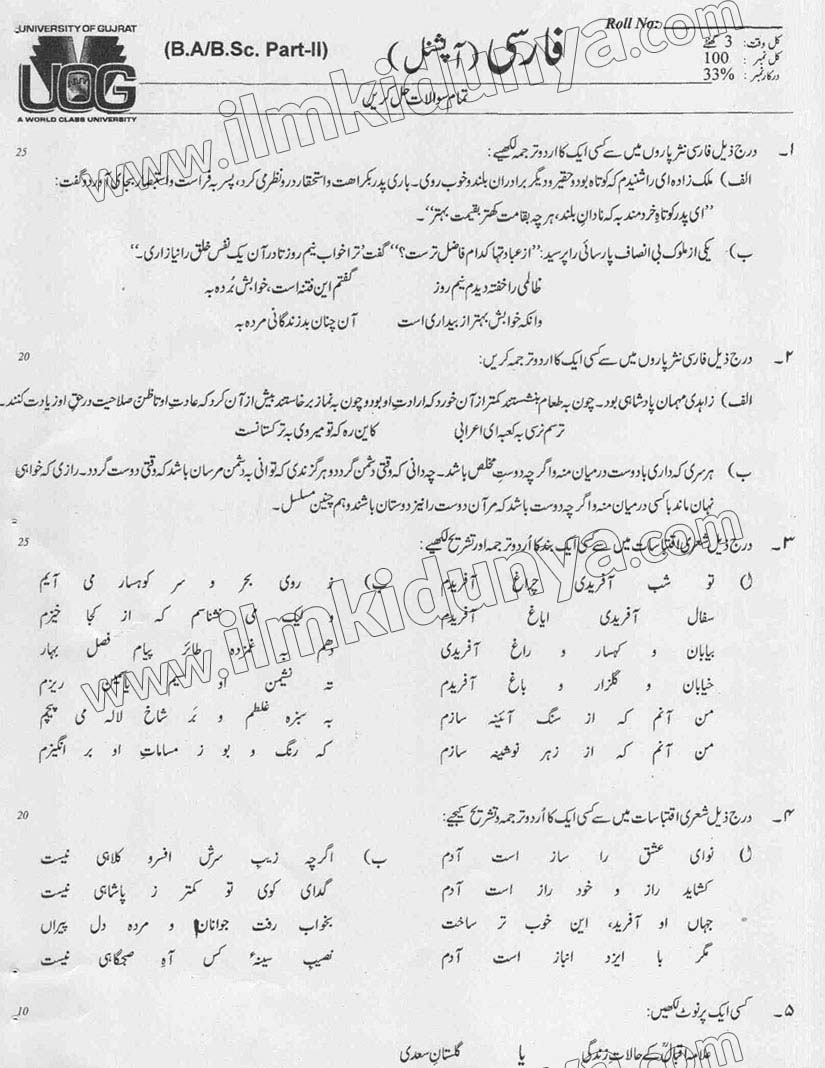 UNIVERSITY OF GUJRAT
UOG
A WORLD CLASS UNIVERSITY
(B.A/B.Sc. Part-II)
فارسی (آپشنل)
Roll No:
کل وقت: 3 گھنٹے
کل نمبر: 100
درکار نمبر: 33%
تمام سوالات حل کریں
۱۔ درج ذیل فارسی نثر پاروں میں سے کسی ایک کا اردو ترجمہ لکھیے: 25
الف) ملک زادہ ای را شنیدم کہ کوتاہ بود و حقیر و دیگر برادران بلند و خوب روی۔ باری پدر بکراھت و استحقار درو نظر می کرد، پسر بہ فراست و استبصار بجای آورد و گفت:
"ای پدر کوتاہِ خردمند بہ کہ نادانِ بلند، ہر چہ بقامت کھتر بقیمت بہتر"۔
ب) یکی از ملوک بی انصاف پارسائی را پرسید: "از عبادتہا کدام فاضل ترست؟" گفت "ترا خواب نیم روز تا در آن یک نفس خلق را نیازاری۔"
ظالمی را خفتہ دیدم نیم روز گفتم این فتنہ است، خوابش بُردہ بہ
وانکہ خوابش بہتر از بیداری است آن چنان بد زندگانی مردہ بہ
۲۔ درج ذیل فارسی نثر پاروں میں سے کسی ایک کا اردو ترجمہ کریں: 20
الف) زاہدی مہمان پادشاہی بود۔ چون بہ طعام بنشستند کمتر از آن خورد کہ ارادتِ او بود و چون بہ نماز برخاستند بیش از آن کرد کہ عادتِ او تا ظنِ صلاحیت در حقِ او زیادت کنند۔
ترسم نرسی بہ کعبہ ای اعرابی کاین رہ کہ تو میروی بہ ترکستانست
ب) ہر سری کہ داری با دوست درمیان منہ و اگرچہ دوستِ مخلص باشد۔ چہ دانی کہ وقتی دشمن گردد و ہر گزندی کہ توانی بہ دشمن مرسان باشد کہ وقتی دوست گردد۔ رازی کہ خواہی
نہان ماند با کسی درمیان منہ و اگرچہ دوست باشد کہ مر آن دوست را نیز دوستان باشند و ہم چنین مسلسل۔
۳۔ درج ذیل شعری اقتباسات میں سے کسی ایک بند کا اُردو ترجمہ اور تشریح لکھیے: 25
ا) تو شب آفریدی چراغ آفریدم
سفال آفریدی ایاغ آفریدم
بیابان و کہسار و راغ آفریدی
خیابان و گلزار و باغ آفریدم
من آنم کہ از سنگ آئینہ سازم
من آنم کہ از زہر نوشینہ سازم
ب) ز روی بحر و سر کوہسار می آیم
و لیک می نشناسم کہ از کجا خیزم
دھم بہ غمزدہ طائر پیام فصل بہار
تہ نشیمن او سیم یاسمین ریزم
بہ سبزہ غلطم و بَر شاخ لالہ می پیچم
کہ رنگ و بو ز مساماتِ او بر انگیزم
۴۔ درج ذیل شعری اقتباسات میں سے کسی ایک کا اُردو ترجمہ و تشریح کیجیے: 20
ا) نوای عشق را ساز است آدم
کشاید راز و خود راز است آدم
جہاں او آفرید، این خوب تر ساخت
مگر با ایزد انباز است آدم
ب) اگرچہ زیبِ سرش افسر و کلاہی نیست
گدای کوی تو کمتر ز پاشاہی نیست
بخواب رفت جوانان و مردہ دل پیراں
نصیبِ سینۂ کس آہِ صبحگاہی نیست
۵۔ کسی ایک پر نوٹ لکھیں: 10
علامہ اقبالؒ کے حالاتِ زندگی یا گلستانِ سعدی
www.ilmkidunya.com
www.ilmkidunya.com